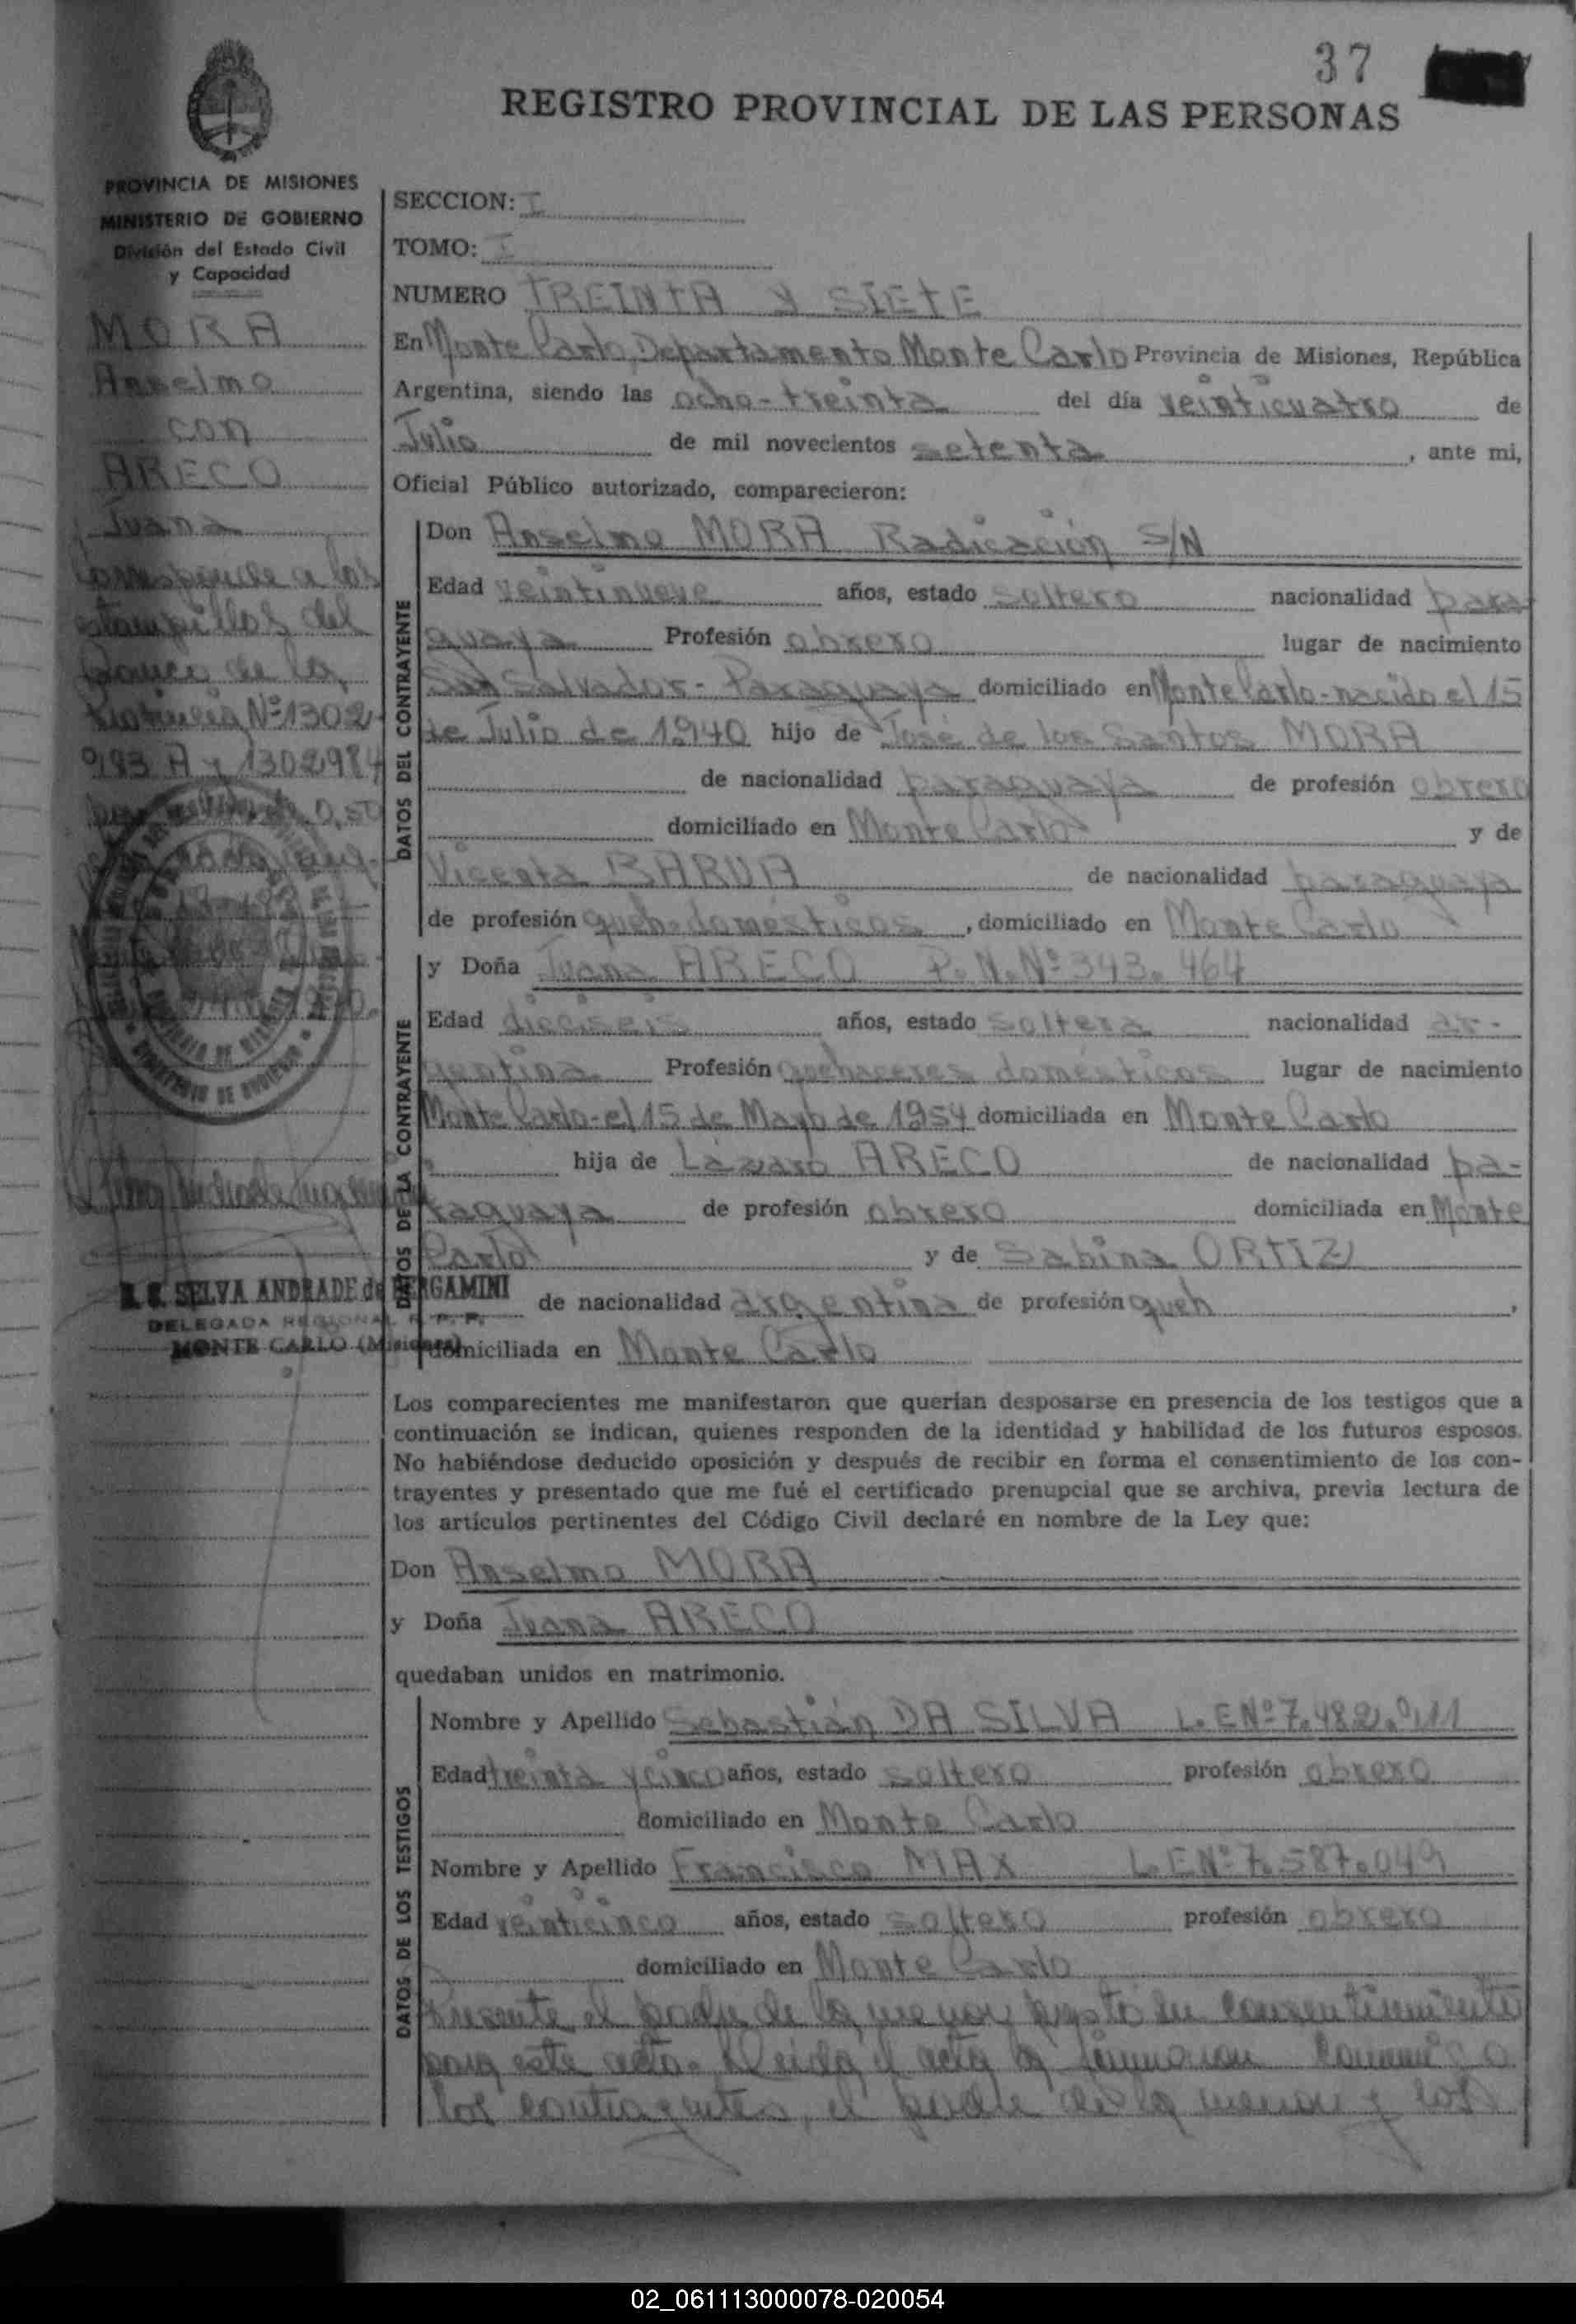 37
REGISTRO PROVINCIAL DE LAS PERSONAS
PROVINCIA DE MISIONES
MINISTERIO DE GOBIERNO
División del Estado Civil
y Capacidad
MORA
Anselmo
con
ARECO
Juana
Corresponde a las
estampillas del
de la
Nº 1302
993 A y 1302984
0,50
S. S. SELVA ANDRADE de BERGAMINI
DELEGADA REGIONAL R. P. P.
MONTE CARLO (Misiones)
SECCION: I
TOMO: I
NUMERO TREINTA Y SIETE
En Monte Carlo, Departamento Monte Carlo Provincia de Misiones, República
Argentina, siendo las ocho-treinta del día veinticuatro de
Julio de mil novecientos setenta, ante mi,
Oficial Público autorizado, comparecieron:
DATOS DEL CONTRAYENTE
Don Anselmo MORA Radicación S/N
Edad veintinueve años, estado soltero nacionalidad para-
guaya Profesión obrero lugar de nacimiento
San Salvador- Paraguaya domiciliado en Monte Carlo-nacido el 15
de Julio de 1940 hijo de José de los Santos MORA
de nacionalidad paraguaya de profesión obrero
domiciliado en Monte Carlo y de
Vicenta BARUA de nacionalidad paraguaya
de profesión queh-domésticos, domiciliado en Monte Carlo
DATOS DE LA CONTRAYENTE
y Doña Juana ARECO P.N.Nº 343.464
Edad dieciseis años, estado soltera nacionalidad ar-
gentina Profesión quehaceres domésticos lugar de nacimiento
Monte Carlo-el 15 de Mayo de 1954 domiciliada en Monte Carlo
hija de Lázaro ARECO de nacionalidad pa-
raguaya de profesión obrero domiciliada en Monte
Carlo y de Sabina ORTIZ
de nacionalidad argentina de profesión queh,
domiciliada en Monte Carlo
Los comparecientes me manifestaron que querían desposarse en presencia de los testigos que a
continuación se indican, quienes responden de la identidad y habilidad de los futuros esposos.
No habiéndose deducido oposición y después de recibir en forma el consentimiento de los con-
trayentes y presentado que me fué el certificado prenupcial que se archiva, previa lectura de
los artículos pertinentes del Código Civil declaré en nombre de la Ley que:
Don Anselmo MORA
y Doña Juana ARECO
quedaban unidos en matrimonio.
DATOS DE LOS TESTIGOS
Nombre y Apellido Sebastián DA SILVA L.E Nº 7.482.911
Edad treinta y cinco años, estado soltero profesión obrero
domiciliado en Monte Carlo
Nombre y Apellido Francisco MAX L.E Nº 7.587.049
Edad veinticinco años, estado soltero profesión obrero
domiciliado en Monte Carlo
Presente el padre de la menor prestó su consentimiento
para este acto. Leida el acta la firmaron conmigo
los contrayentes, el padre de la menor y los
02_061113000078-020054